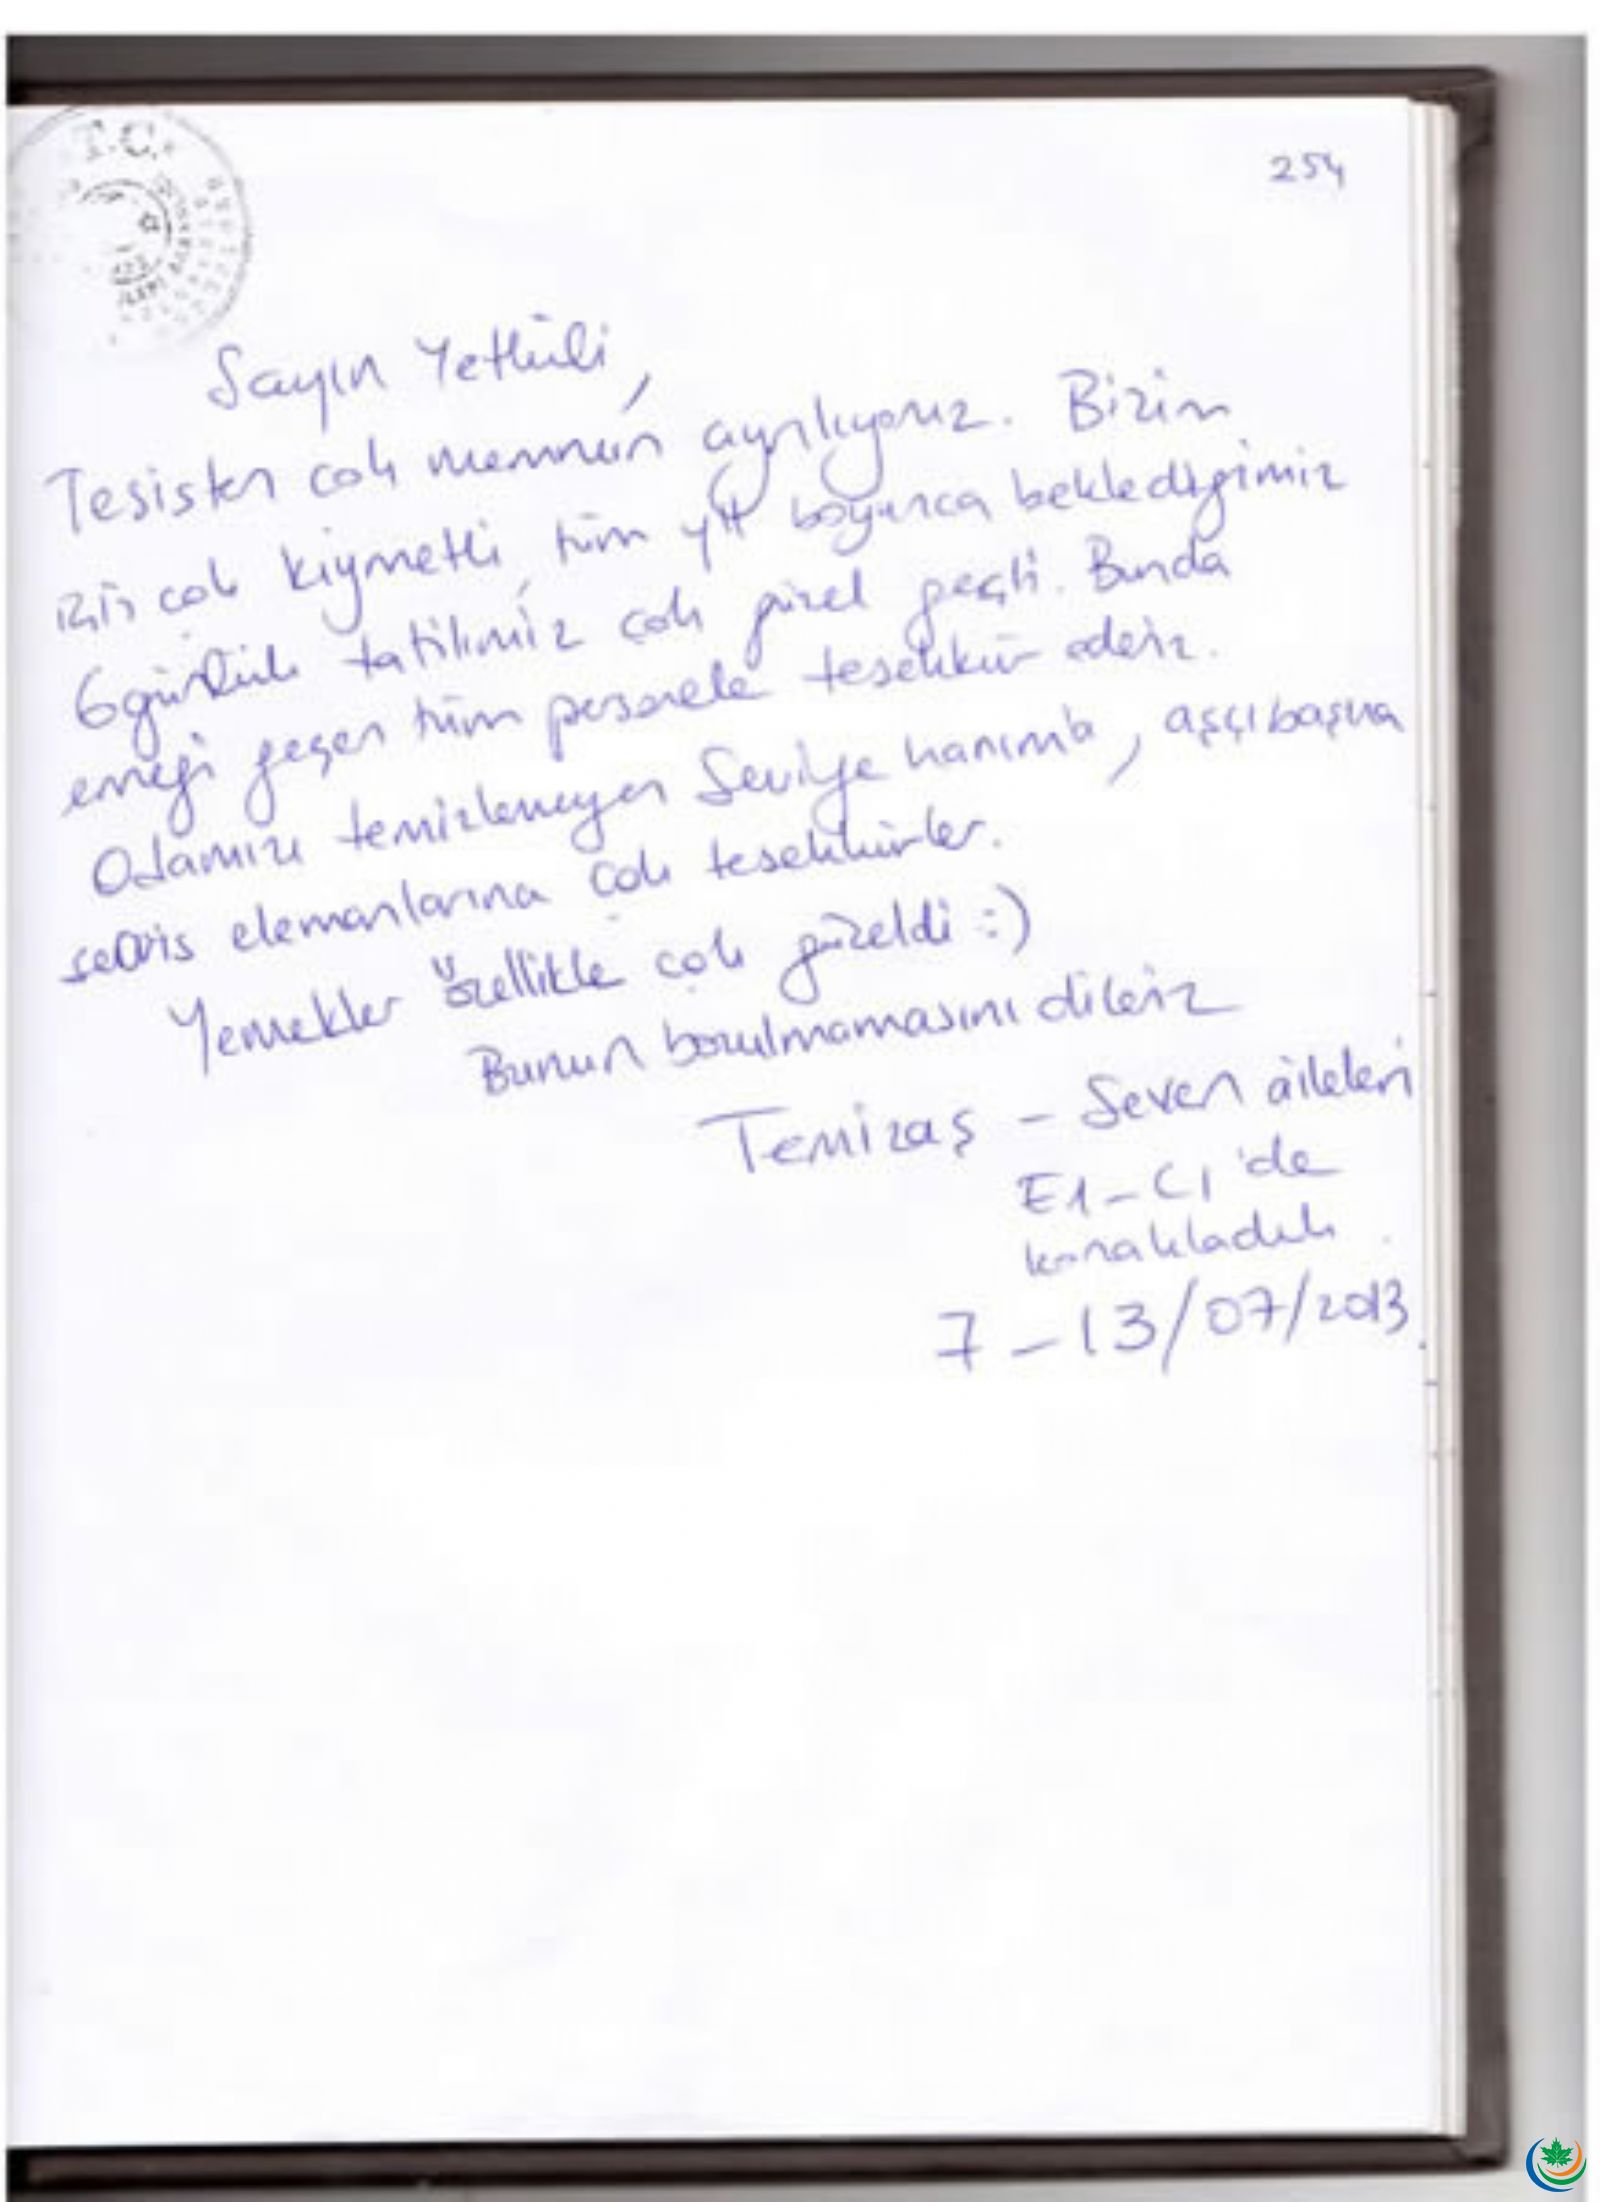 T.C.
254
Sayın Yetkili,
Tesisten çok memnun ayrılıyoruz. Bizim
için çok kıymetli, tüm yıl boyunca beklediğimiz
6 günlük tatilimiz çok güzel geçti. Bunda
emeği geçen tüm personele teşekkür ederiz.
Odamızı temizlemeyen hanıma, aşçıbaşına
servis elemanlarına çok teşekkürler.
Yemekler özellikle çok güzeldi :)
Bunun bozulmamasını dileriz
Temizaş - Seven aileleri
E1-C1'de
konakladık.
7-13/07/2013